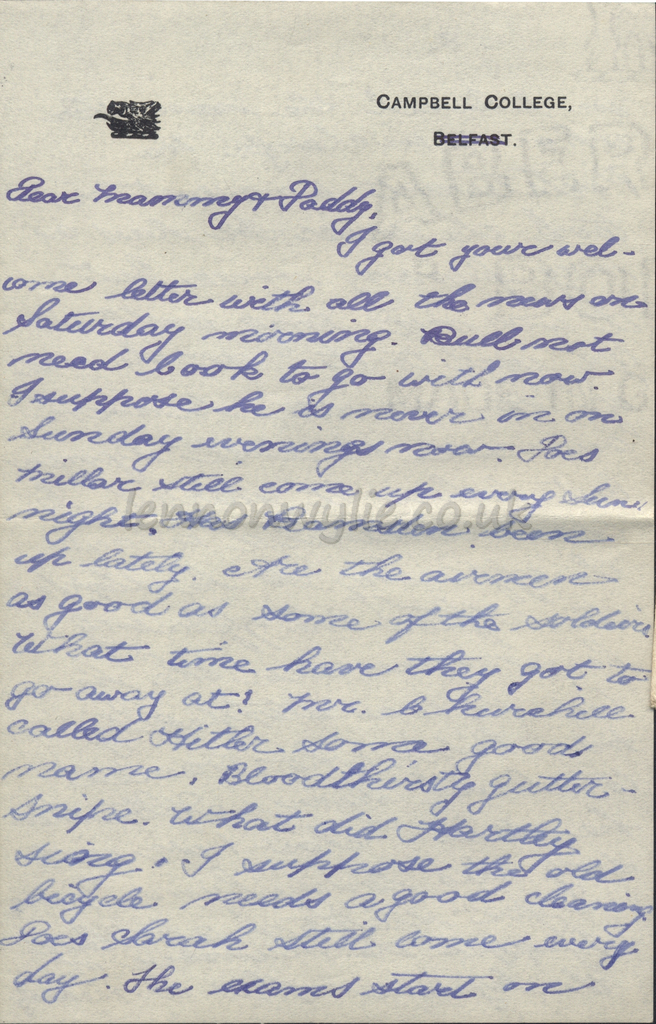 CAMPBELL COLLEGE,
BELFAST.
Dear Mammy & Daddy,
I got your wel-
come letter with all the news on
Saturday morning. Bull not
need book to go with now.
I suppose he is never in on
Sunday evenings now. Does
Millar still come up every Sun.
night. Has been
up lately. Are the airmen
as good as some of the soldiers
What time have they got to
go away at! Mr. Churchill
called Hitler some good
name. Bloodthirsty gutter-
snipe. What did Hartley
sing. I suppose the old
bicycle needs a good cleaning.
Does Sarah still come every
day. The exams start on
lennonwylie.co.uk